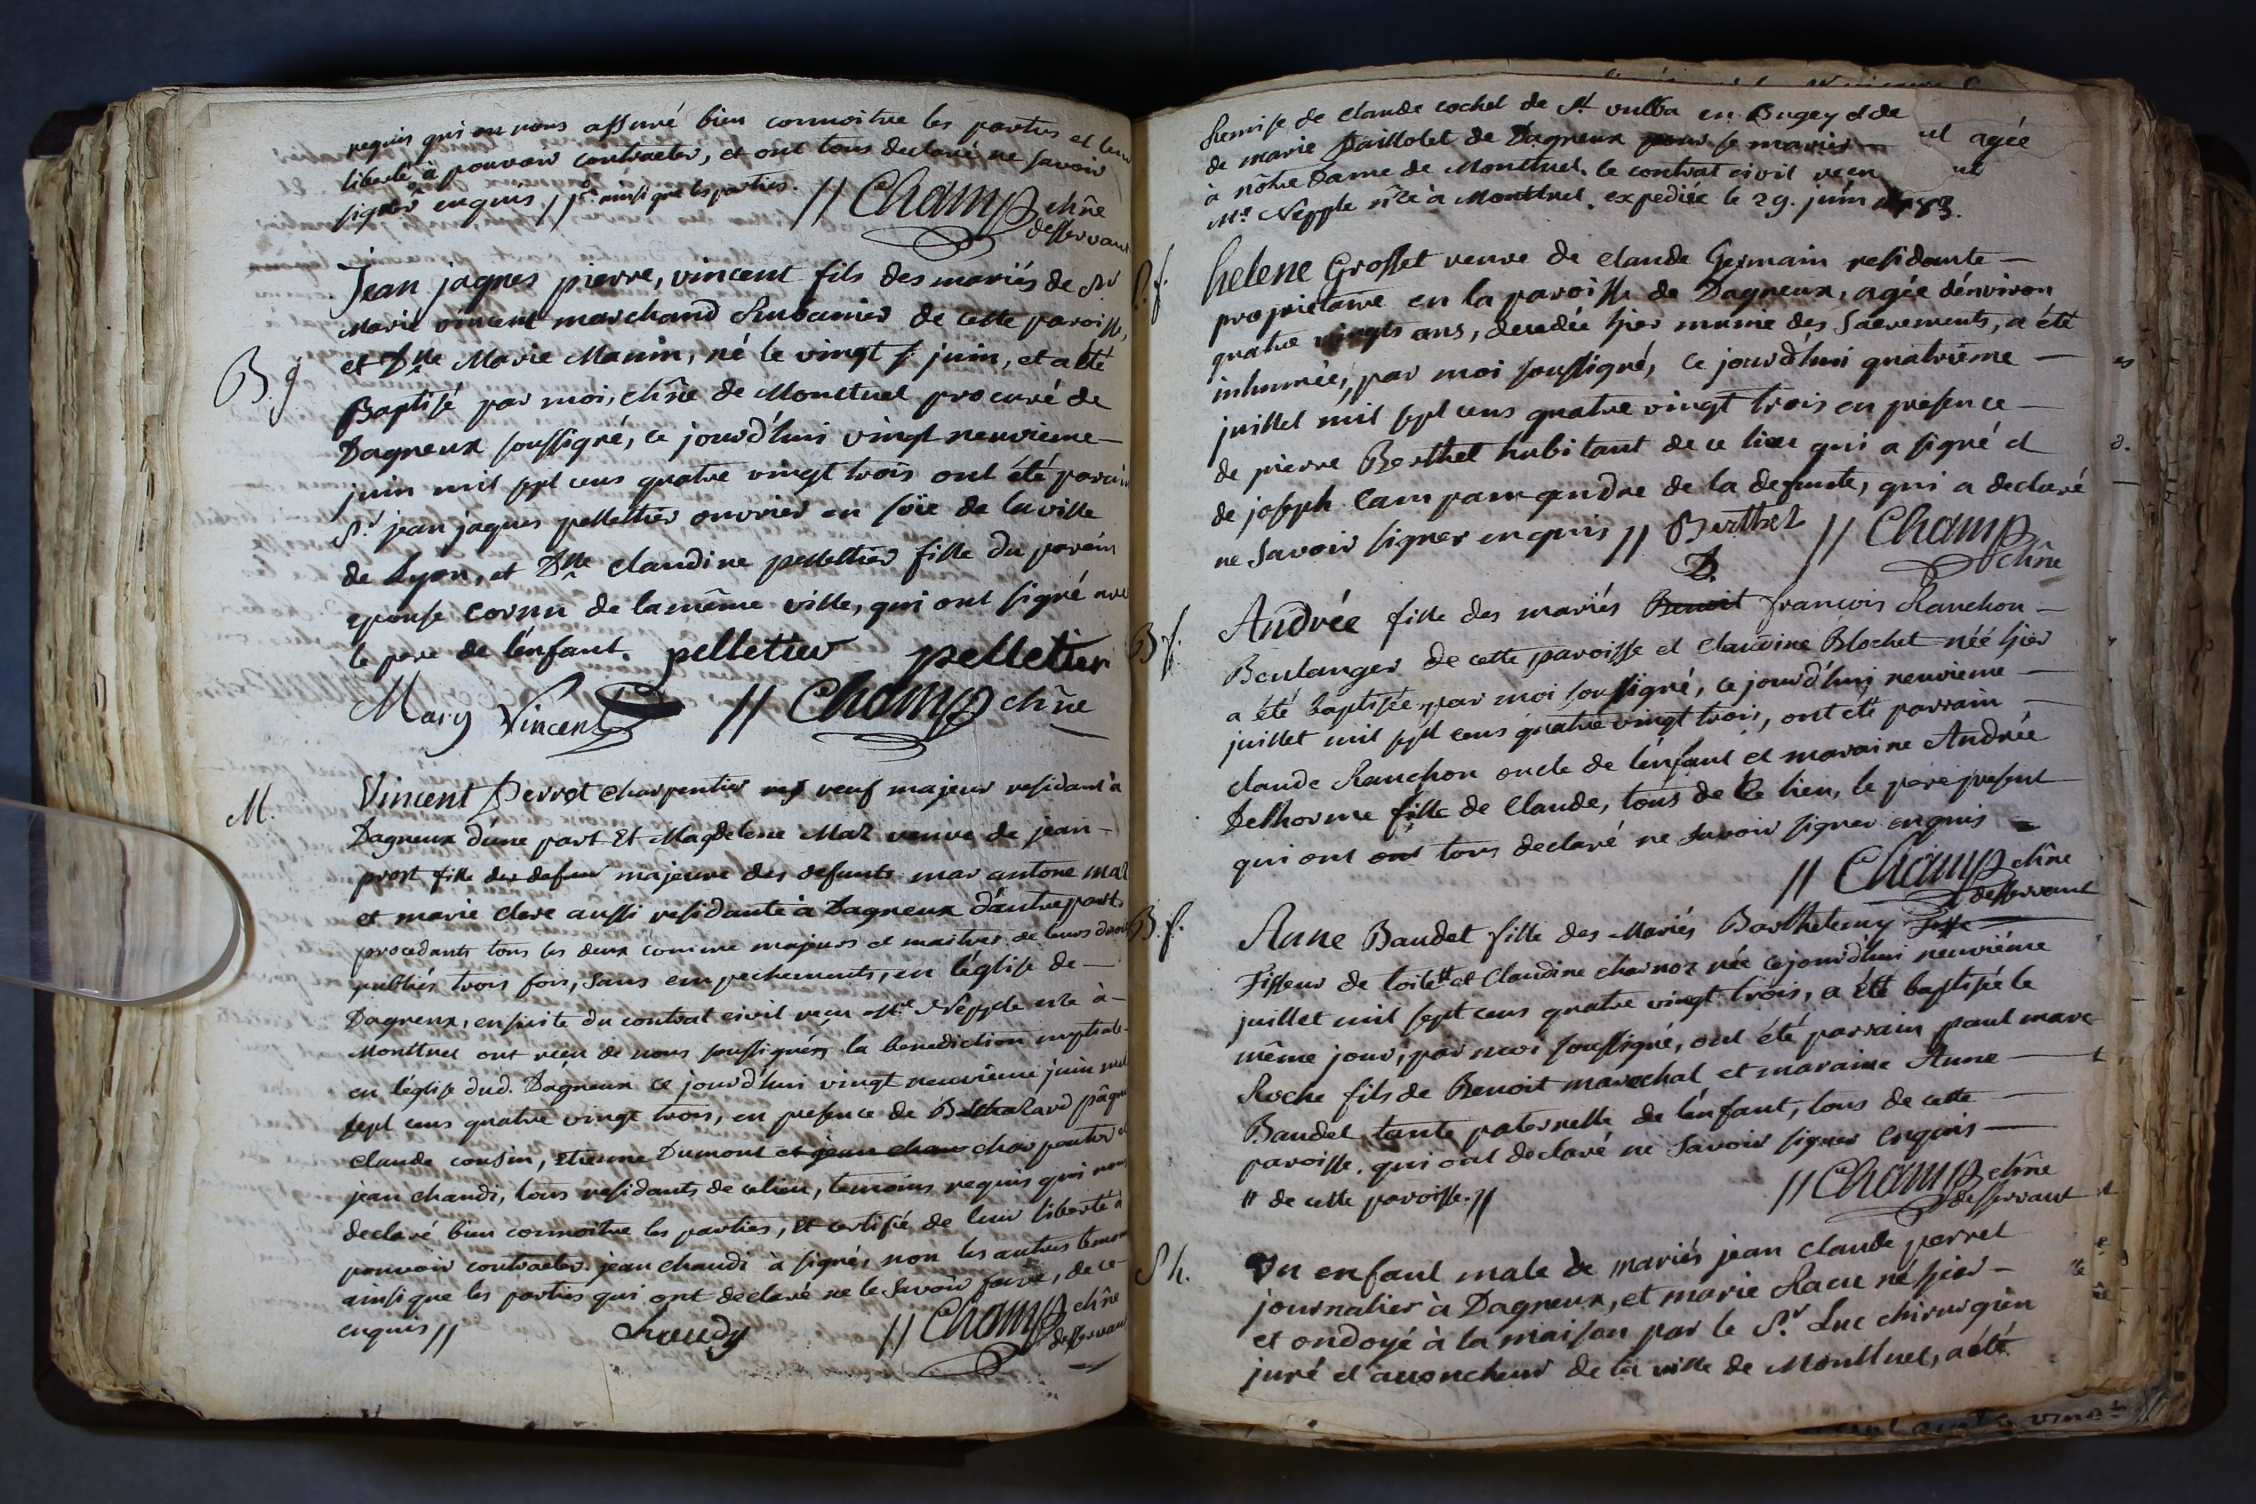 requis qui ont nous assuré bien connoitre les parties et leur
liberté à pouvoir contracter, et ont tous declaré ne savoir
signer enquis // ainsi que les parties. // Champ chñe
desservant
B. g
Jean jaques pierre, vincent fils des mariés de Sr
Marie vincent marchand Rubanier de cette paroisse,
et Dlle Marie Manin, né le vingt juin, et a été
Baptisé par moi, chñe de Montluel procuré de
Dagneux soussigné, ce jourd'hui vingt neuvieme
juin mil sept cens quatre vingt trois ont été parain
Sr jean jaques pellettier ouvrier en soïe de la ville
de Lyon, et Dlle claudine pellettier fille du parein
epouse cornu de la même ville, qui ont signé avec
le pere de l'enfant. pelletier pelletier
Mary Vincent // Champ chñe
M.
Vincent Perrot charpentier veuf majeur residant à
Dagneux d'une part Et Magdelene Maz veuve de jean
prost fille des defun majeure des defunts mar antone maz
et marie clere aussi residante à Dagneux d'autre part
procedants tous les deux comme majeurs et maitres de leurs droits
publiés trois fois, sans empechements, en l'église de
Dagneux, ensuite du contrat civil reçu Mre Nepple nre à
Montluel ont reçu de nous soussignés la benediction nuptiale
en l'église dud. Dagneux ce jourd'hui vingt neuvieme juin mil
sept cens quatre vingt trois, en presence de
claude cousin, etienne Dumont et jean chau charpentier et
jean chaudi, tous residants de ce lieu, temoins requis qui nous
declaré bien connoitre les parties, et certifié de leur liberté à
pouvoir contracter. jean chaudi à signé, non les autres temoins
ainsi que les parties qui ont declaré ne le savoir faire, de ce
enquis // Chaudy // Champ chñe
desservant
Remise de claude cochet de St vulba en Bugey et de
de marie Paillolet de Dagneux pour se marier agée
à nôtre Dame de Montluel. le contrat civil recu
Mre Nepple nre à Montluel. expediée le 29. juin 1783.
S. f.
helene Grosset veuve de claude Germain residante
proprietaire en la paroisse de Dagneux, agée d'environ
quatre vingts ans, decedée hier munie des Sacrements, a été
inhumée, par moi soussigné, ce jourd'hui quatrieme
juillet mil sept cens quatre vingt trois en presence
de pierre Berthet habitant de ce lieu qui a signé et
de joseph Campam gendre de la defunte, qui a declaré
ne savoir signer enquis // Berthet // Champ
chñe
B f.
Andrée fille des mariés Benoit francois Ranchon
Boulanger de cette paroisse et Claudine Blochet née hier
a été baptisée, par moi soussigné, ce jourd'hui neuvieme
juillet mil sept cens quatre vingt trois, ont été parrain
claude Ranchon oncle de l'enfant et maraine Andrée
Delhorme fille de Claude, tous de ce lieu, le père present
qui ont ont tous declaré ne savoir signer enquis
// Champ chñe
desservant
B. f.
Anne Baudet fille des Mariés Barthelemy Tiss
Tisseur de toile # et Claudine charnoz née ce jourd'hui neuvième
juillet mil sept cens quatre vingt trois, a été baptisée le
même jour, par moi soussigné, ont été parrain paul marc
Roche fils de Benoit marechal et maraine Anne
Baudet tante paternelle de l'enfant, tous de cette
paroisse. qui ont declaré ne savoir signer enquis
# de cette paroisse. // // Champ chñe
desservant
Sh.
Un enfant male de mariés jean claude perret
journalier à Dagneux, et marie Racu né hier
et ondoyé à la maison par le Sr Luc chirurgien
juré et accoucheur de la ville de Montluel, a été